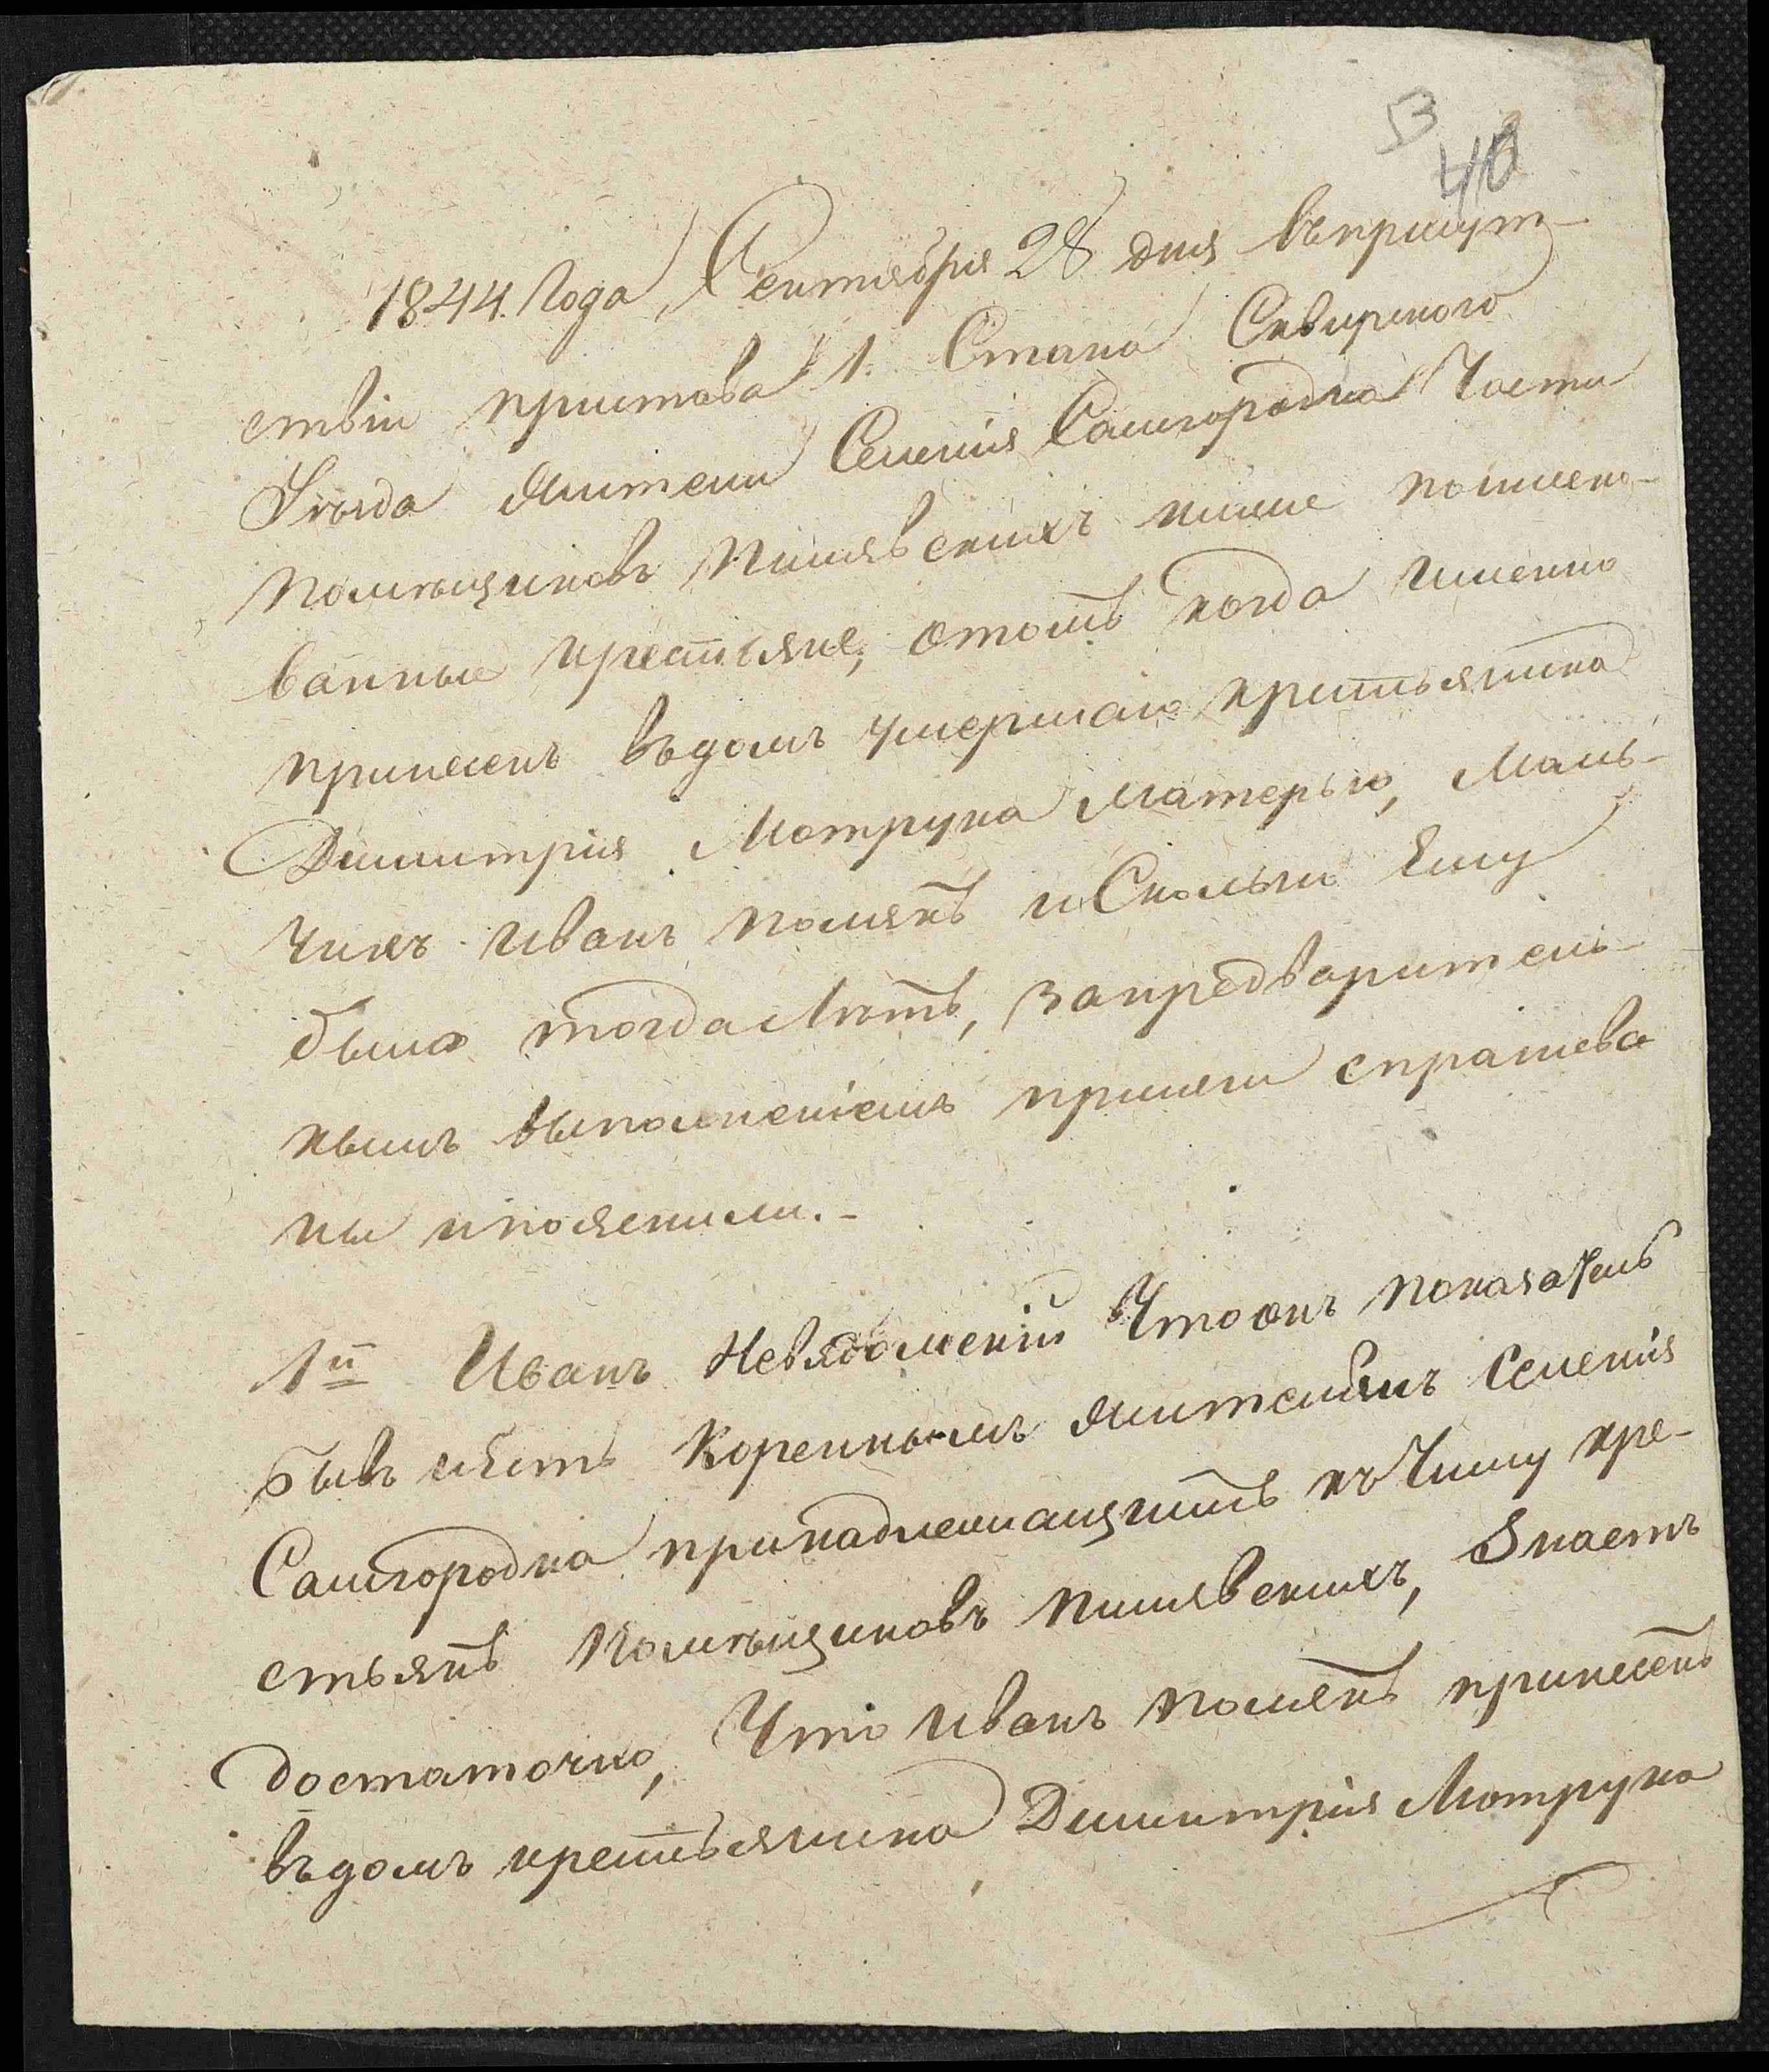 53
40
1844. Года Сентября 28 дня въприсут-
ствіи пристава 1. Стана Сквирского
Уѣзда жители Селенія Самгородка Части
помѣщиковъ Пишявскихъ ниже поимено-
ванные крестьяне, отомъ когда именно
принесенъ въдомъ умершаго крестьянина
Димитрія Мотрука матерью, маль-
чикъ Иванъ полякъ иСколько Ему
было тогда Лѣтъ, запредварител-
нымъ выполненіемъ присяги спрашева
ны ипояснили.-
1й Иванъ Невядомскій Что онъ показатель
бывъ иесть Кореннымъ жителемъ Селенія
Самгородка принадлежащимъ къЧислу кре-
стьянъ Помѣщиковъ Пишявскихъ, Знаетъ
достаточно, Что Иванъ полякъ принесенъ
въдомъ крестьянина Димитрія Мотрука